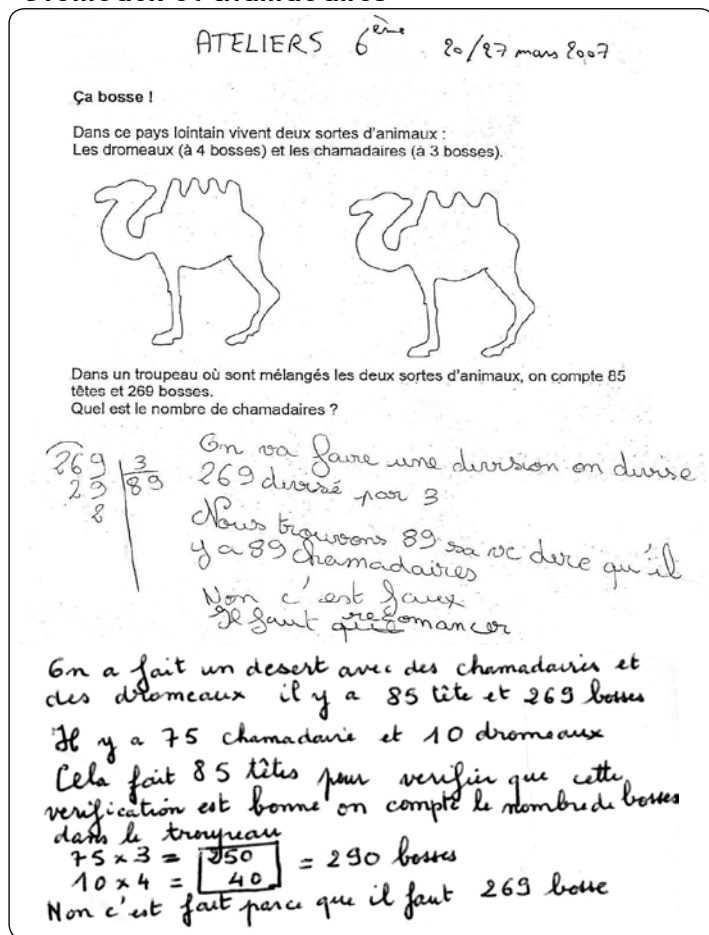 ATELIERS 6ème 20/27 mars 2007
Ça bosse !
Dans ce pays lointain vivent deux sortes d'animaux :
Les dromeaux (à 4 bosses) et les chamadaires (à 3 bosses).
Dans un troupeau où sont mélangés les deux sortes d'animaux, on compte 85
têtes et 269 bosses.
Quel est le nombre de chamadaires ?
269 3
29 89
2
On va faire une division on divise
269 divisé par 3
Nous trouvons 89 sa vc dire qu'il
y a 89 chamadaires
Non c'est faux
Il faut recomancer
On a fait un desert avec des chamadairis et
des dromeaux il y a 85 tête et 269 bosses
Il y a 75 chamadaire et 10 dromeaux
Cela fait 85 têtes pour verifier que cette
verification est bonne on compte le nombre de bosses
dans le troupeau
75 x 3 = 250 = 290 bosses
10 x 4 = 40
Non c'est faut parce que il faut 269 bosse